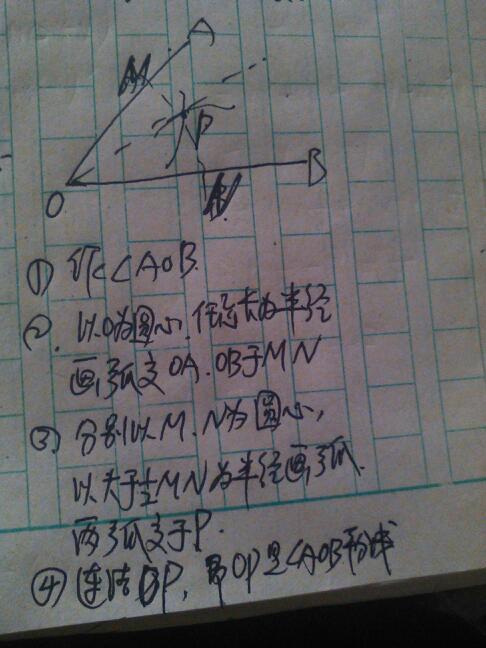 A
M
P
O
N
B
① 作∠AOB.
②. 以O为圆心.任意长为半径
画弧交OA.OB于MN
③ 分别以M.N为圆心,
以大于½MN为半径画弧.
两弧交于P.
④ 连结OP, 即OP是∠AOB平分线